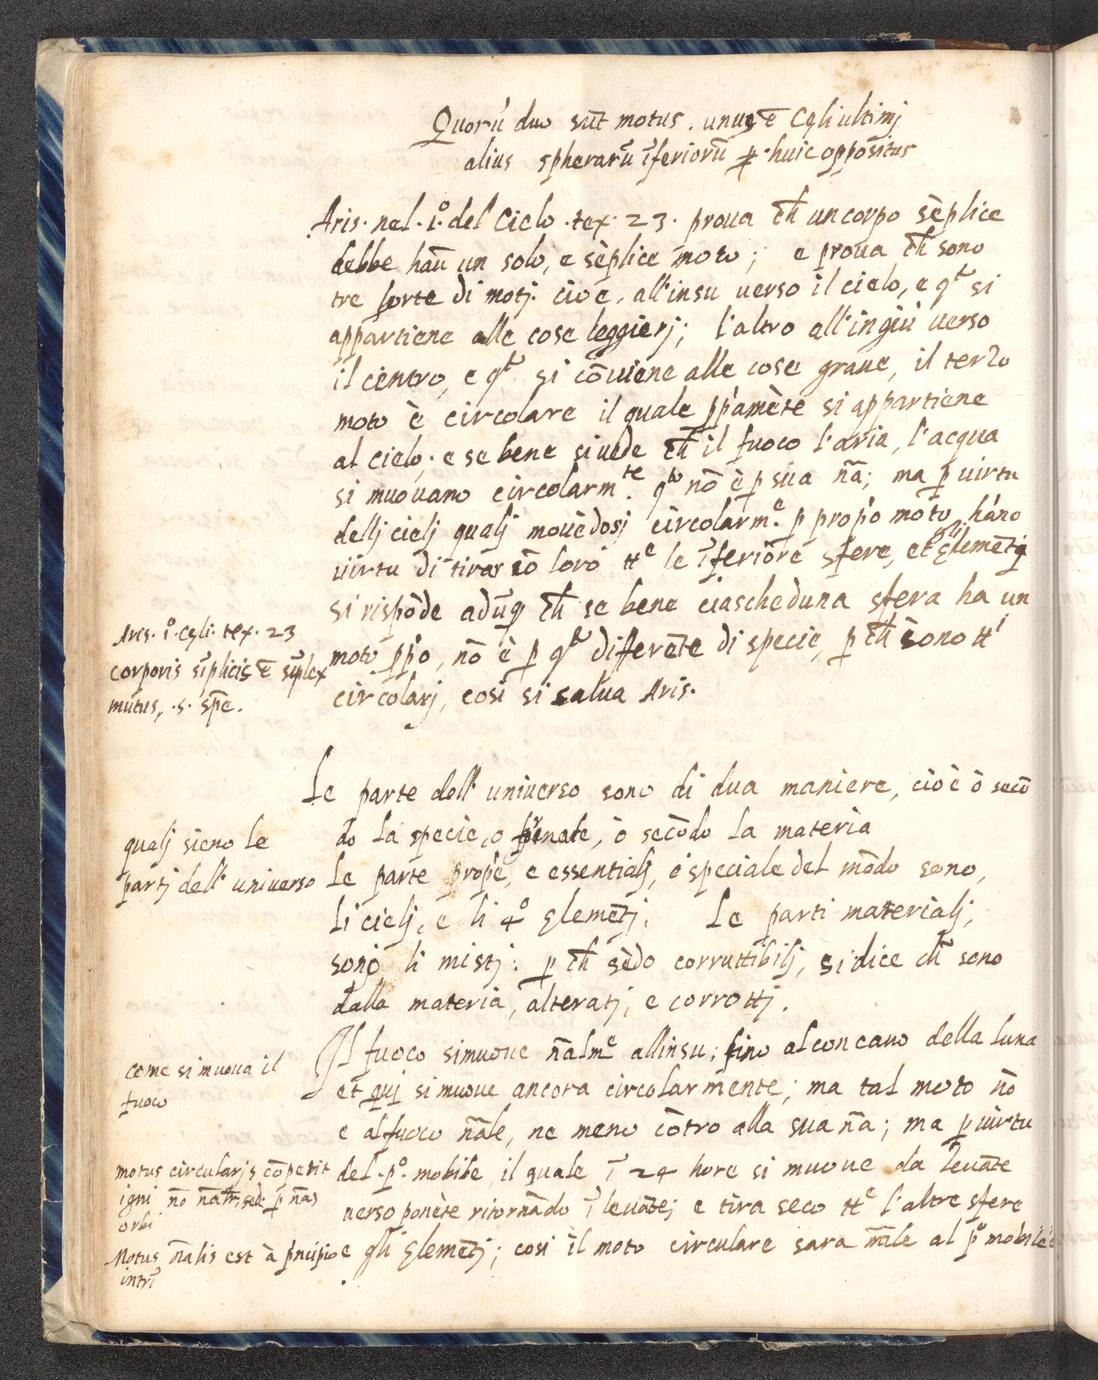 Quorū duo sūt motus. unus ē Cęli ultimj
alius spherarū īferiorū huic oppositus
Aris. nel. i.º del Cielo .tex. 23. proua ch̄ un corpo sēplice
debbe hau un solo, e sēplice moto; e proua ch̄ sono
tre sorte di motj. cioè, all'insu verso il cielo, e qt̄ si
appartiene alle cose leggierj; l'altro all'ingiu verso
il centro, e qt̄ si cōuiene alle cose graue, il terzo
moto è circolare il quale pp'amēte si appartiene
al cielo; e se bene si uede ch̄ il fuoco l'aria, l'acqua
si muouano circolarmte. qto nō è p sua nā; ma p uirtu
dellj cielj qualj mouēdosj circolarme. p prop'o moto, hāno
uirtu di tirar cō loro tte le īferiore sfere, et glj Elemētj
si rispōde adūq ch̄ se bene ciascheduna sfera ha un
moto pp'o, nō è p qt̄ differēte di specie, p ch̄ sono tti
circolarj, cosi si salua Aris.
Aris. i.º Cęli. tex. 23
corporis sīplicis ē sīplex
mutus, .s. spē.
Le parte dell' universo sono di dua maniere, cioè ò secō
do la specie, o ò secōdo la materia
Le parte prop'e, e essentialj, o speciale del mōdo sono,
li cielj, e li 4º Elemētj. Le parti materialj,
sono li mistj: p ch̄ sēdo corruttibilj, si dice ch̄ sono
dalla materia, alteratj, e corrottj.
qualj sieno le
partj dell' universo
Il fuoco simuoue nālme allinsu; fino al concauo della luna
et quj si muoue ancora circolarmente; ma tal moto nō
e al fuoco nāle, ne meno cōtro alla sua nā; ma p uirtu
del .pº. mobile, il quale ī 24 hore si muoue da leuāte
uerso ponēte ritornādo ī leuāte; e tira seco tte l'altre sfere
e gli Elemētj; cosi il moto circulare sara nāle al pº mobile
come si muoua il
fuoco
motus circularis cōpetit
igni nō sed p
orbi
Motus nālis est à prīcipio
intrī